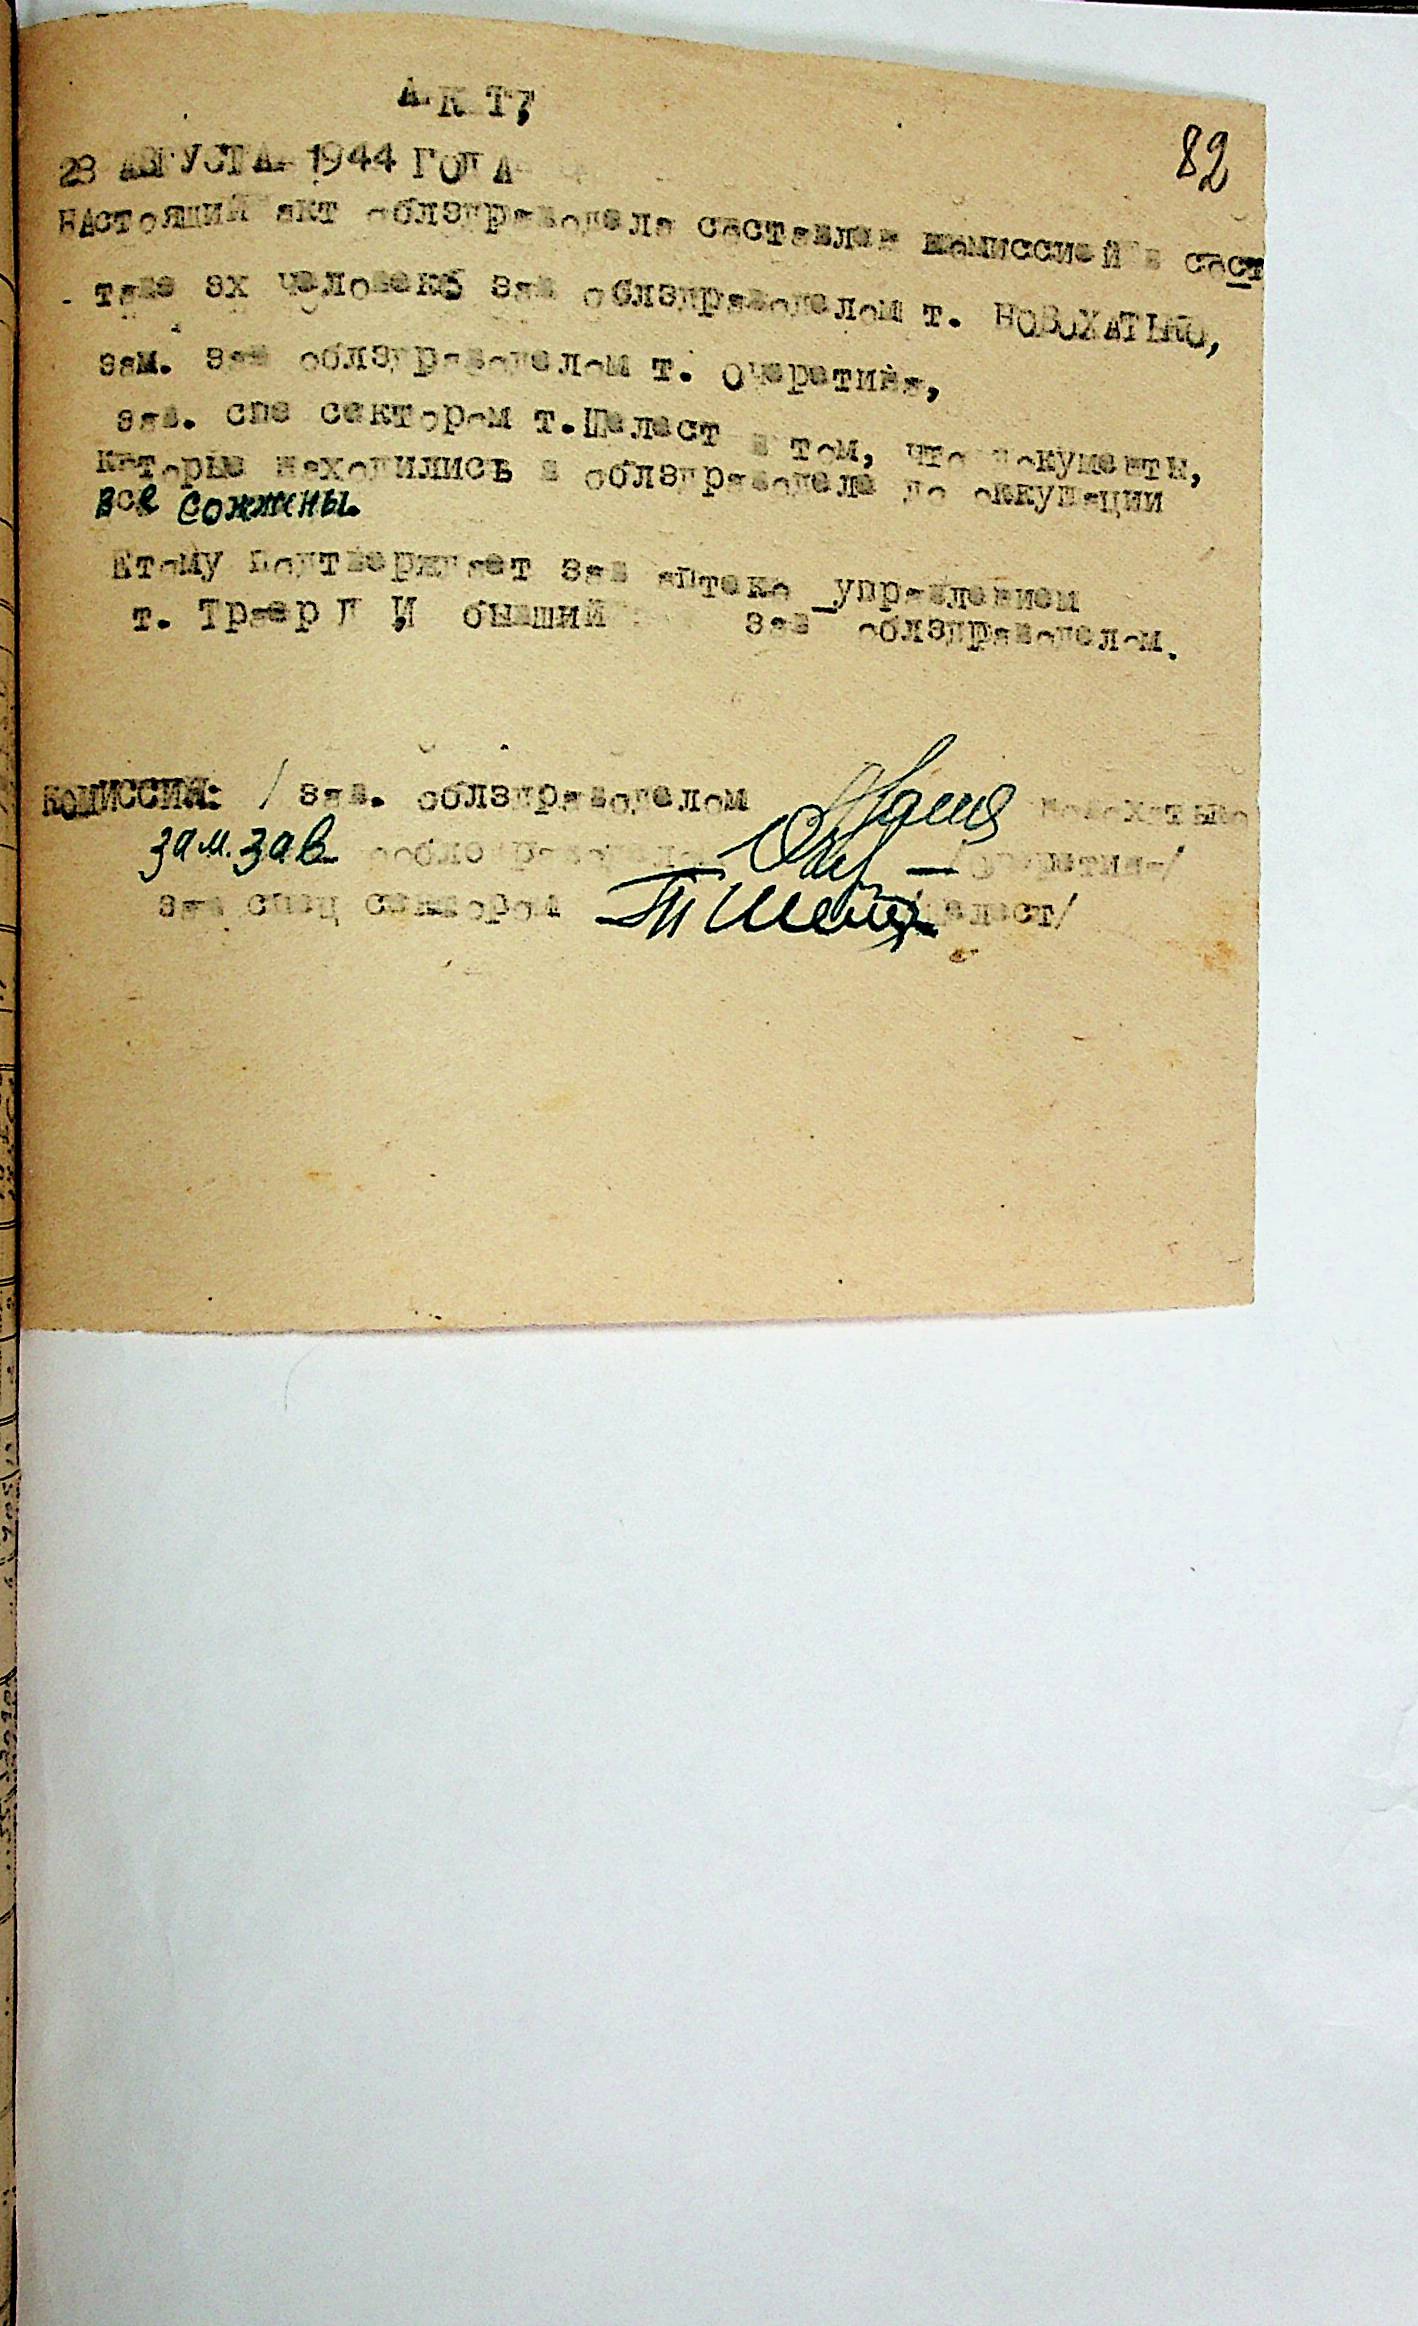 82
А К Т,
28 АВГУСТА 1944 ГОДА
НАстоящий акт облздравотдела составлен комиссией в сост
таве 3х человек зав облздравотделом т. НОВОХАТЬКО,
зам. зав облздравотделом т. Очеретина,
зав. спе сектором т.Шелест в том, что документы,
которые находились в облздравотделе до оккупации
все сожжены.
Етому подтверждает зав аптеко_управлением
т. Траер Л И бывший зав облздравотделом.
КОМИССИЯ: / зав. облздравотделом Новохатько
зам. зав
зав спец сектором Шелест/